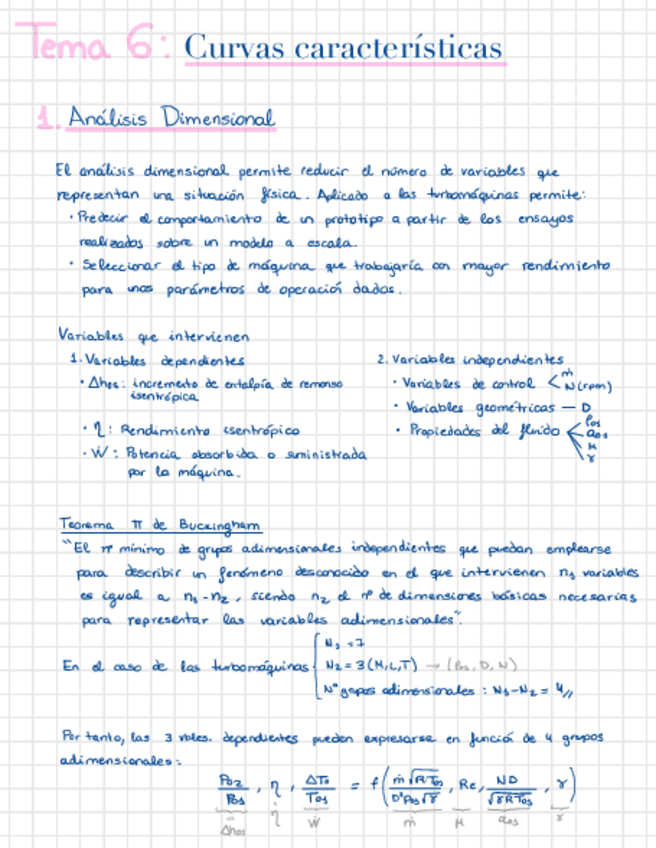 Tema 6: Curvas características
1. Análisis Dimensional
El análisis dimensional permite reducir el número de variables que
representan una situación física. Aplicado a las turbomáquinas permite:
· Predecir el comportamiento de un prototipo a partir de los ensayos
realizados sobre un modelo a escala.
· Seleccionar el tipo de máquina que trabajaría con mayor rendimiento
para unos parámetros de operación dados.
Variables que intervienen
1. Variables dependientes
· Δhos: incremento de entalpía de remanso
isentrópica
· η: Rendimiento isentrópico
· Ẇ: Potencia absorbida o suministrada
por la máquina.
2. Variables independientes
· Variables de control < ṁ
N (rpm)
· Variables geométricas — D
· Propiedades del fluido < ρ01
a01
μ
γ
Teorema π de Buckingham
"El nº mínimo de grupos adimensionales independientes que puedan emplearse
para describir un fenómeno desconocido en el que intervienen n1 variables
es igual a n1-n2, siendo n2 el nº de dimensiones básicas necesarias
para representar las variables adimensionales".
N1 = 7
En el caso de las turbomáquinas { N2 = 3 (M, L, T) → (ρ01, D, N)
Nº grupos adimensionales: N1-N2 = 4//
Por tanto, las 3 vbles. dependientes pueden expresarse en función de 4 grupos
adimensionales:
P02/P01, η, ΔT0/T01 = f( ṁ√RT01/D²p01√γ, Re, ND/√γRT01, γ )
Δhos η Ẇ ṁ μ a01 γ